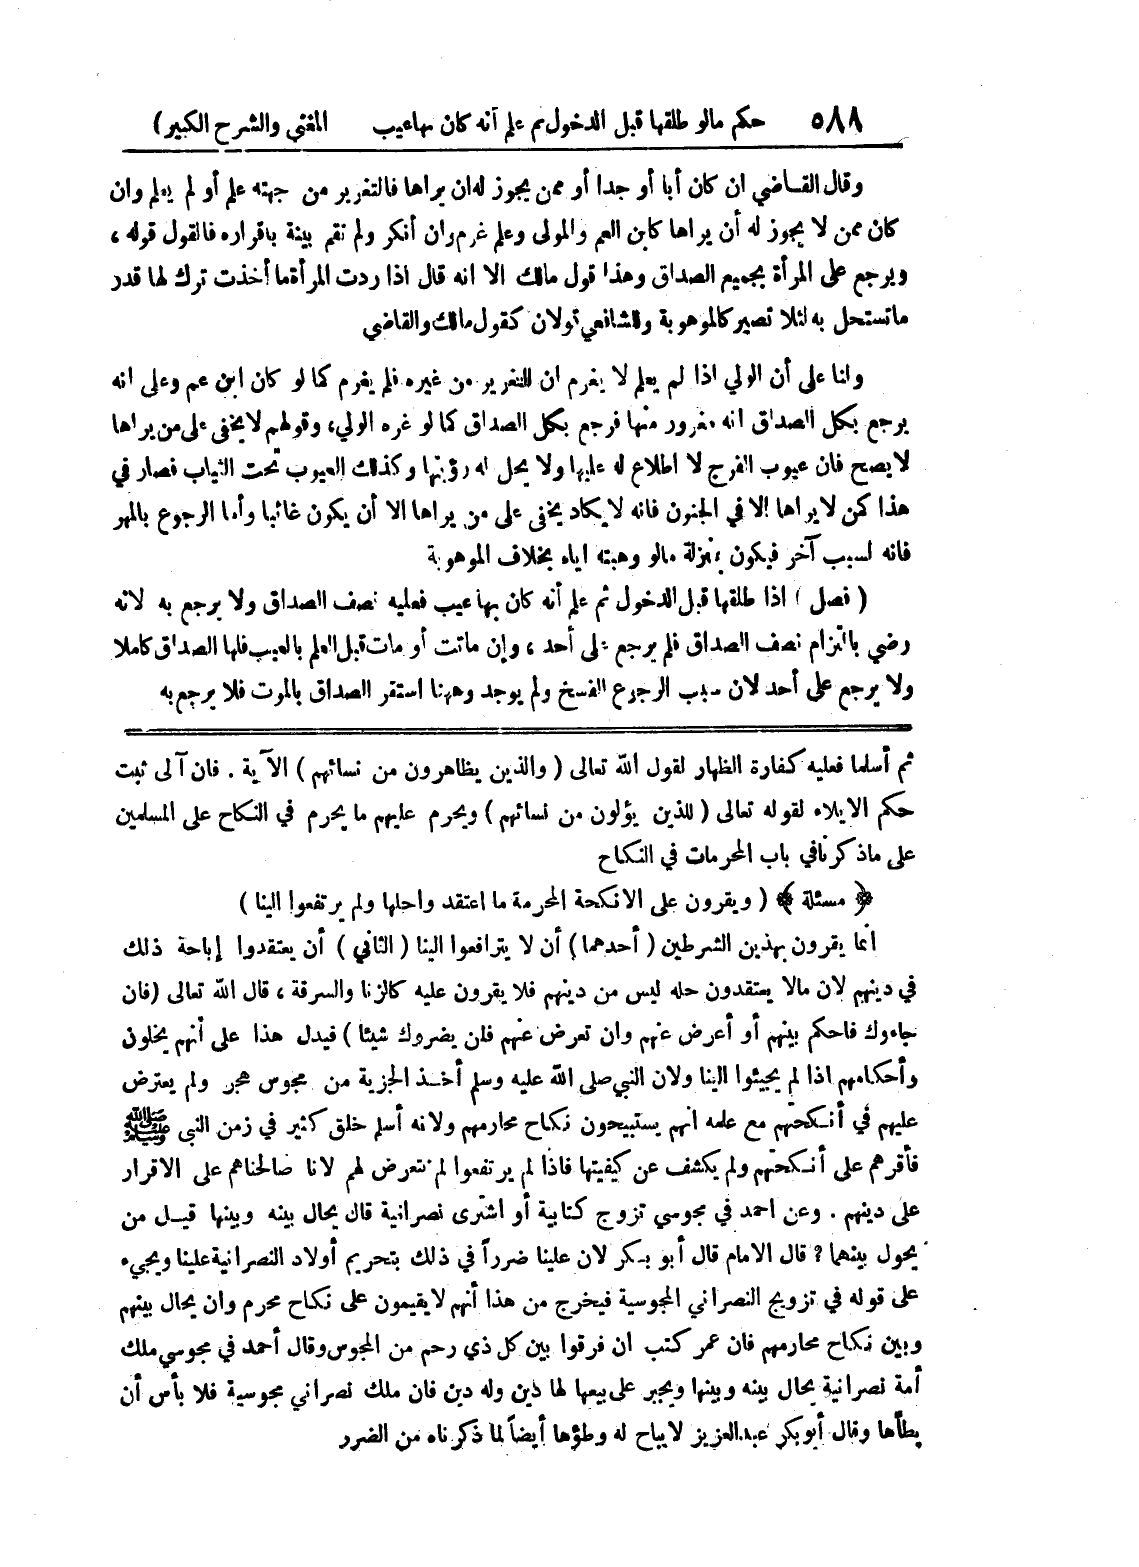 ٥٨٨ حكم مالو طلقها قبل الدخول ثم علم أنه كان بها عيب المغني والشرح الكبير)
وقال القاضي ان كان أبا أو جدا أو ممن يجوز له ان يراها فالتغرير من جهته علم أو لم يعلم وان
كان ممن لا يجوز له أن يراها كابن العم والمولى وعلم غرم وان أنكر ولم تقم بينة باقراره فالقول قوله ،
ويرجع على المرأة بجميع الصداق وهذا قول مالك الا انه قال اذا ردت المرأة ما أخذت ترك لها قدر
ما تستحل به لئلا تصير كالموهوبة وللشافعي قولان كقول مالك والقاضي
ولنا على أن الولي اذا لم يعلم لا يغرم ان التغرير من غيره فلم يغرم كما لو كان ابن عم وعلى انه
يرجع بكل الصداق انه مغرور منها فرجع بكل الصداق كما لو غره الولي، وقولهم لا يخفى على من يراها
لا يصح فان عيوب الفرج لا اطلاع له عليها ولا يحل له رؤيتها وكذلك العيوب تحت الثياب فصار في
هذا كمن لا يراها إلا في الجنون فانه لا يكاد يخفى على من يراها الا أن يكون غائبا وأما الرجوع بالمهر
فانه لسبب آخر فيكون بمنزلة مالو وهبته اياه بخلاف الموهوبة
( فصل ) اذا طلقها قبل الدخول ثم علم أنه كان بها عيب فعليه نصف الصداق ولا يرجع به لانه
رضي بالتزام نصف الصداق فلم يرجع على أحد ، وإن ماتت أو مات قبل العلم بالعيب فلها الصداق كاملا
ولا يرجع على أحد لان سبب الرجوع الفسخ ولم يوجد وههنا استقر الصداق بالموت فلا يرجع به
ثم أسلما فعليه كفارة الظهار لقول الله تعالى ( والذين يظاهرون من نسائهم ) الآية . فان آلى ثبت
حكم الايلاء لقوله تعالى ( للذين يؤلون من نسائهم ) ويحرم عليهم ما يحرم في النكاح على المسلمين
على ماذكرنا في باب المحرمات في النكاح
﴿ مسئلة ﴾ ( ويقرون على الانكحة المحرمة ما اعتقدوا حلها ولم يرتفعوا الينا )
انما يقرون بهذين الشرطين ( أحدهما ) أن لا يترافعوا الينا ( الثاني ) أن يعتقدوا إباحة ذلك
في دينهم لان مالا يعتقدون حله ليس من دينهم فلا يقرون عليه كالزنا والسرقة ، قال الله تعالى (فان
جاءوك فاحكم بينهم أو أعرض عنهم وان تعرض عنهم فلن يضروك شيئا ) فيدل هذا على أنهم يخلون
وأحكامهم اذا لم يجيئوا الينا ولان النبي صلى الله عليه وسلم أخذ الجزية من مجوس هجر ولم يعترض
عليهم في أنكحتهم مع علمه انهم يستبيحون نكاح محارمهم ولانه أسلم خلق كثير في زمن النبي ﷺ
فأقرهم على أنكحتهم ولم يكشف عن كيفيتها فاذا لم يرتفعوا لم نتعرض لهم لانا صالحناهم على الاقرار
على دينهم . وعن احمد في مجوسي تزوج كتابية أو اشترى نصرانية قال يحال بينه وبينها قيل من
يحول بينهما ؟ قال الامام قال أبو بكر لان علينا ضرراً في ذلك بتحريم أولاد النصرانية علينا ويجيء
على قوله في تزويج النصراني المجوسية فيخرج من هذا أنهم لا يقيمون على نكاح محرم وان يحال بينهم
وبين نكاح محارمهم فان عمر كتب ان فرقوا بين كل ذي رحم من المجوس وقال أحمد في مجوسي ملك
أمة نصرانية يحال بينه وبينها ويجبر على بيعها لها دين وله دين فان ملك نصراني مجوسية فلا بأس أن
يطأها وقال أبو بكر عبد العزيز لا يباح له وطؤها أيضاً لما ذكرناه من الضرر